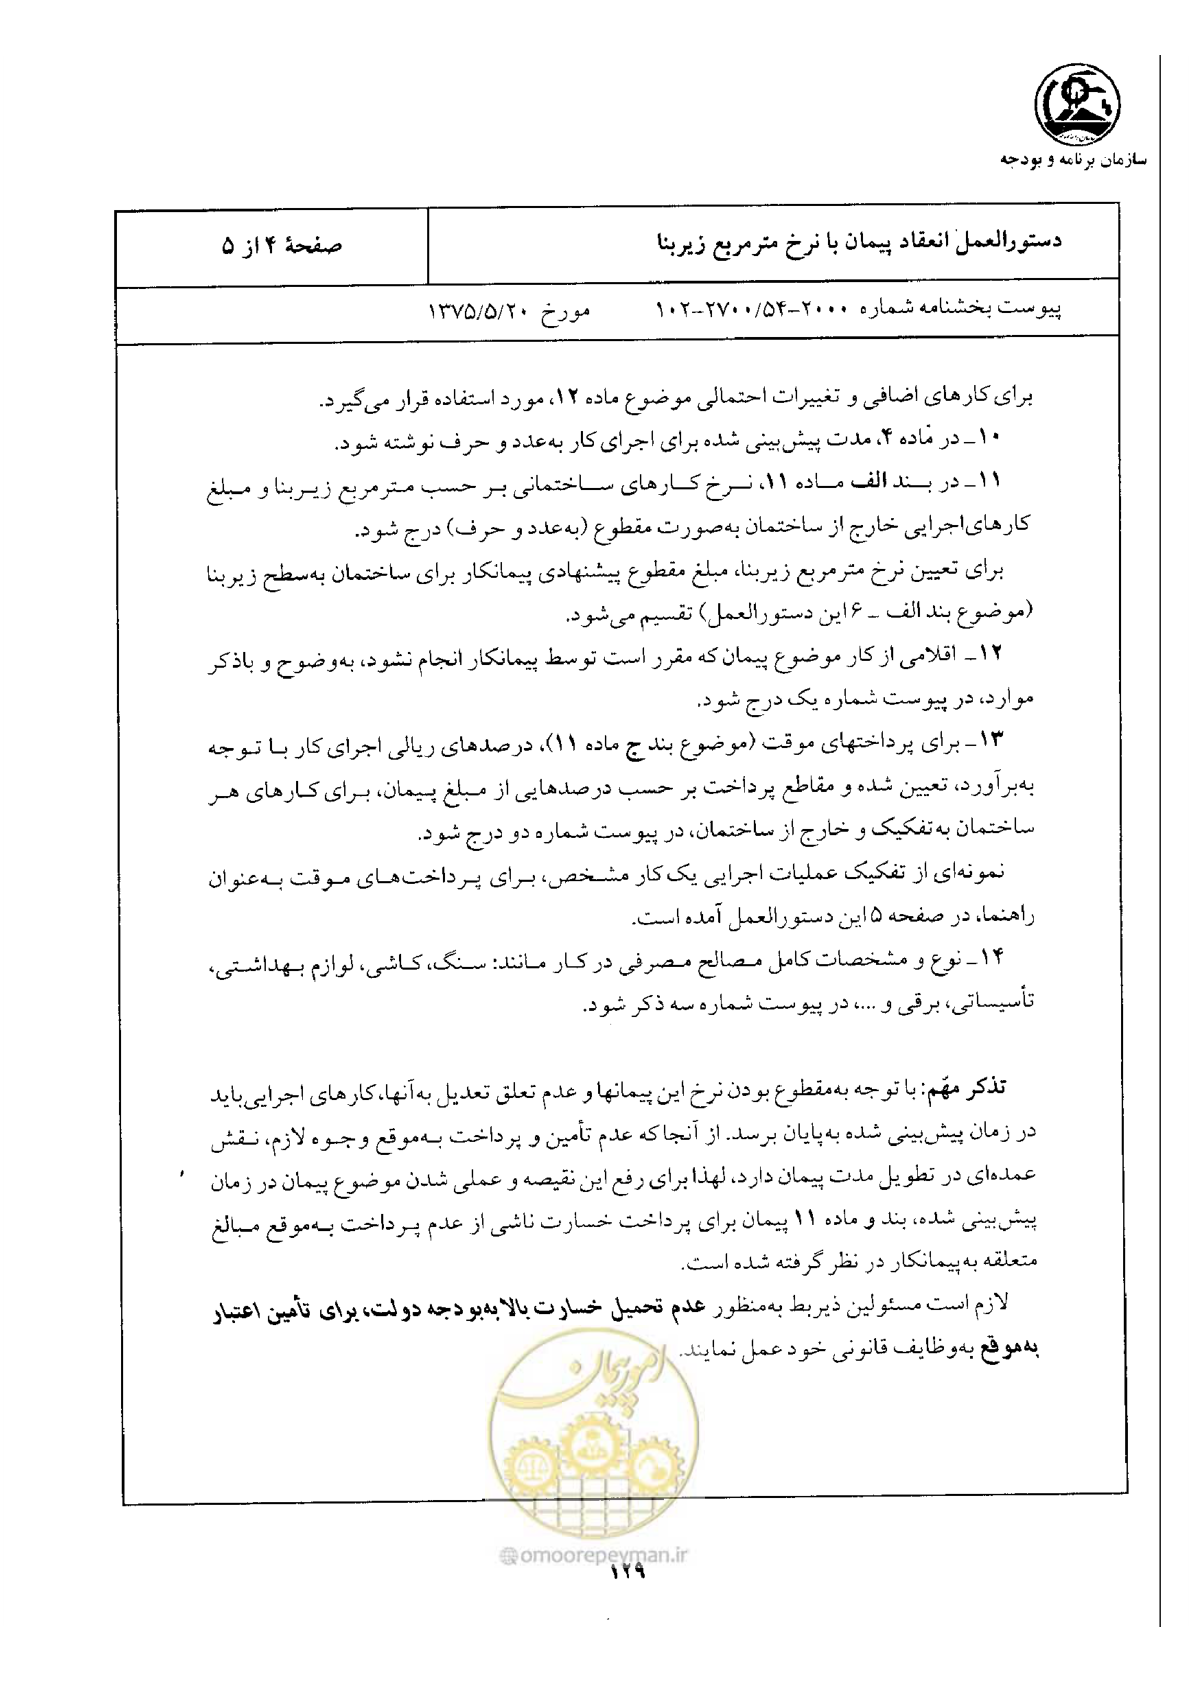 سازمان برنامه و بودجه
دستورالعمل انعقاد پیمان با نرخ مترمربع زیربنا
صفحهٔ ۴ از ۵
پیوست بخشنامه شماره ۲۰۰۰-۲۷۰۰/۵۴-۱۰۲ مورخ ۱۳۷۵/۵/۲۰
برای کارهای اضافی و تغییرات احتمالی موضوع ماده ۱۲، مورد استفاده قرار می‌گیرد.
۱۰- در ماده ۴، مدت پیش‌بینی شده برای اجرای کار به‌عدد و حرف نوشته شود.
۱۱- در بند الف ماده ۱۱، نرخ کارهای ساختمانی بر حسب مترمربع زیربنا و مبلغ
کارهای‌اجرایی خارج از ساختمان به‌صورت مقطوع (به‌عدد و حرف) درج شود.
برای تعیین نرخ مترمربع زیربنا، مبلغ مقطوع پیشنهادی پیمانکار برای ساختمان به‌سطح زیربنا
(موضوع بند الف - ۶ این دستورالعمل) تقسیم می‌شود.
۱۲- اقلامی از کار موضوع پیمان که مقرر است توسط پیمانکار انجام نشود، به‌وضوح و باذکر
موارد، در پیوست شماره یک درج شود.
۱۳- برای پرداختهای موقت (موضوع بند ج ماده ۱۱)، درصدهای ریالی اجرای کار با توجه
به‌برآورد، تعیین شده و مقاطع پرداخت بر حسب درصدهایی از مبلغ پیمان، برای کارهای هر
ساختمان به‌تفکیک و خارج از ساختمان، در پیوست شماره دو درج شود.
نمونه‌ای از تفکیک عملیات اجرایی یک کار مشخص، برای پرداخت‌های موقت به‌عنوان
راهنما، در صفحه ۵ این دستورالعمل آمده است.
۱۴- نوع و مشخصات کامل مصالح مصرفی در کار مانند: سنگ، کاشی، لوازم بهداشتی،
تأسیساتی، برقی و ...، در پیوست شماره سه ذکر شود.
تذکر مهّم: با توجه به‌مقطوع بودن نرخ این پیمانها و عدم تعلق تعدیل به‌آنها، کارهای اجرایی‌باید
در زمان پیش‌بینی شده به‌پایان برسد. از آنجاکه عدم تأمین و پرداخت به‌موقع وجوه لازم، نقش
عمده‌ای در تطویل مدت پیمان دارد، لهذا برای رفع این نقیصه و عملی شدن موضوع پیمان در زمان
پیش‌بینی شده، بند و ماده ۱۱ پیمان برای پرداخت خسارت ناشی از عدم پرداخت به‌موقع مبالغ
متعلقه به‌پیمانکار در نظر گرفته شده است.
لازم است مسئولین ذیربط به‌منظور عدم تحمیل خسارت بالا به‌بودجه دولت، برای تأمین اعتبار
به‌موقع به‌وظایف قانونی خود عمل نمایند.
امور پیمان
@omoorepeyman.ir
۱۲۹